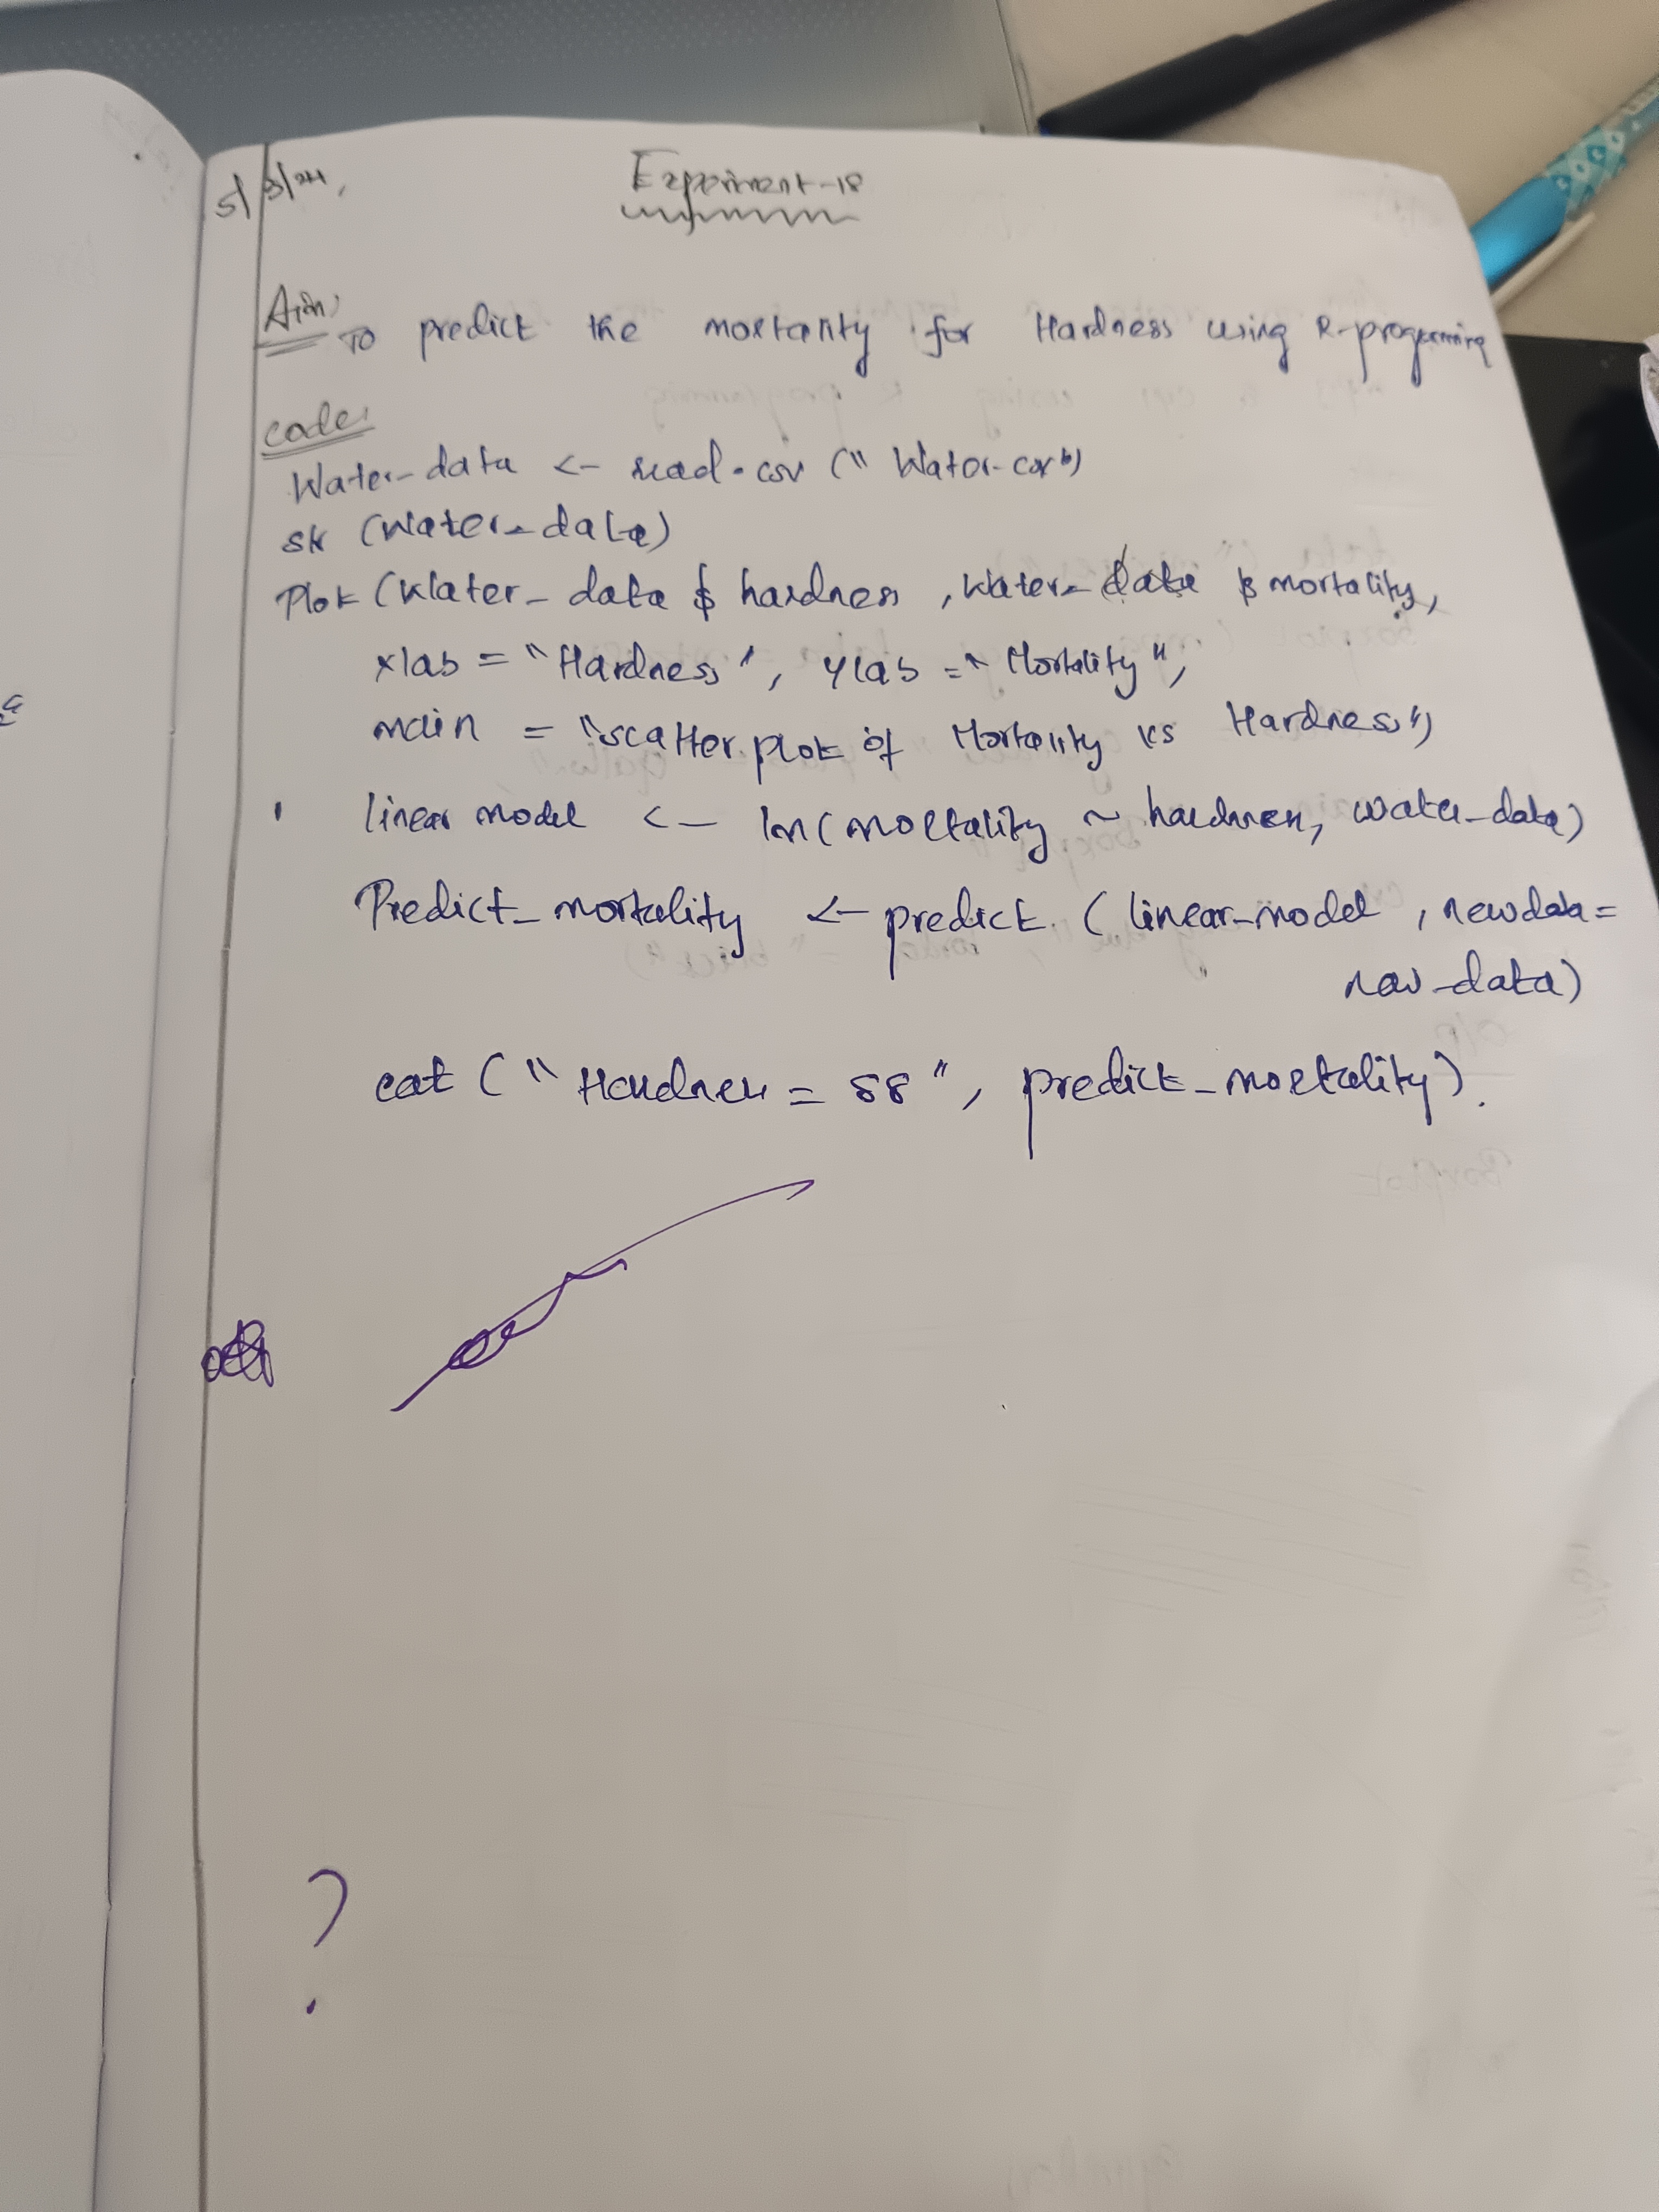 5/3/24,
Experiment-18
Aim:
To predict the mortality for Hardness using R-programing
code:
Water-data <- read.csv ("Water.csv")
str (Water_data)
Plot (Water_data $ hardness, Water_data $ mortality,
xlab = "Hardness", ylab = "Mortality",
main = "scatter plot of Mortality vs Hardness")
linear model <- lm(mortality ~ hardness, water_data)
Predict_mortality <- predict (linear_model, newdata =
new_data)
cat ("Hardness = 88", predict_mortality).
?